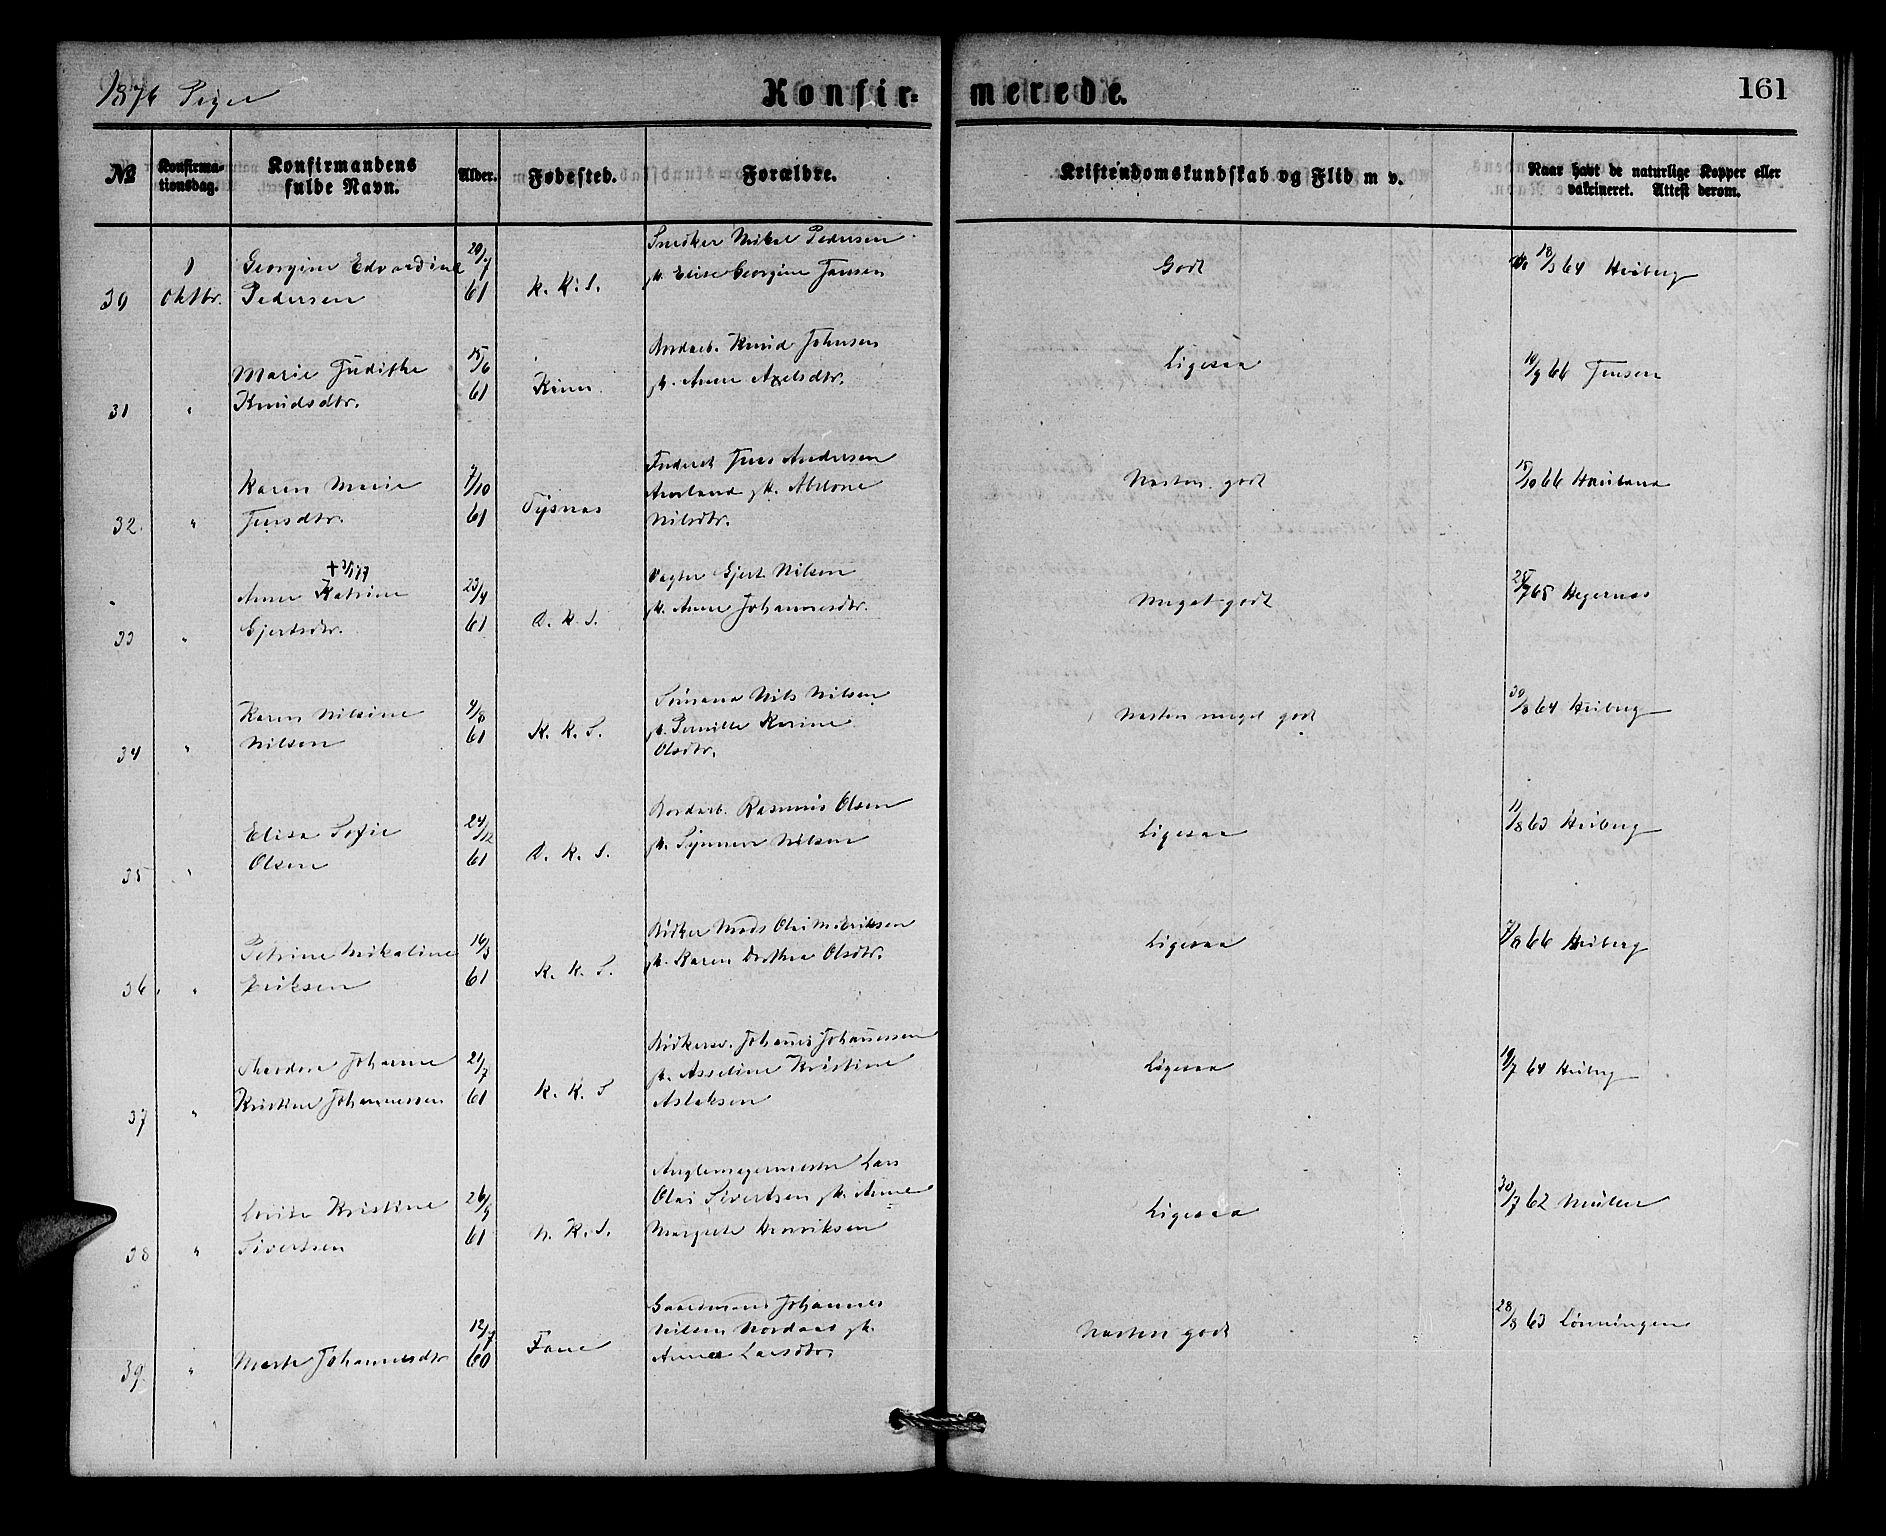 1876 Piger
Konfir-merede.
161
No
Konfirma-tionsdag.
Konfirmandens fulde Navn.
Alder.
Fødested.
Forældre.
Kristendomskundskab og Flid m v.
Naar havt de naturlige Kopper eller vakcineret. Attest derom.
Snedker Mikal Pedersen
1 Georgine Edvardine 20/7 gk. Elise Georgine Jansen Godt 18/3 64 Heiberg
30 Oktbr. Pedersen 61 K. K. S.
Bordarb. Knud Johnsen
Marie Judithe 15/6 Ligesaa
31 " Knudsdtr. 61 Kinn gk. Anne Axelsdtr. 19/9 66 Jensen
Inderst Jens Andersen
Karen Marie 7/10 gk. Abelone Næsten godt 15/10 66 Haaland
32. " Jensdtr. 61 Tysnæs Nilsdtr.
† 3/1 77
Anne Katrine 23/4 Vægter Gjert Nilsen
33 " Gjertsdtr. 61 D. K. S. gk. Anne Johannesdtr. Meget godt 25/7 65 Hegernæs
Karen Nilsine 4/8 Sømand Nils Nilsen
34 " Nilsen 61 K. K. S. gk. Pernille Karine Næsten meget godt 30/8 64 Heiberg
Olsdtr.
Elisa Sofie 24/12 Bordarb. Rasmus Olsen
35 " Olsen 61 D. K. S. gk. Synneve Nilsen Ligesaa 11/8 63 Heiberg
Petrine Mikaline 16/3 Bødker Mads Olai M. Eriksen
36 " Eriksen 61 K. K. S. gk. Karen Dorthea Olsdtr. Ligesaa 7/9 66 Heiberg
Johanne 21/7 Bødkersv. Johanes Johannessen
37 " Kristine Johannessen 61 K. K. S gk. Asseline Kristine Ligesaa 19/7 64 Heiberg
Aslaksen
Lars
Lovise Kristine 26/9 Olai Sivertsen gk. Anne
38 " Sivertsen 61 N. K. S. Margrete Henriksen Ligesaa 30/7 62 Müller
Gaardmand Johannes
12/7 Nilsen Nordaas gk.
39. " Marte Johannesdtr 60 Fane Anna Larsdtr. Næsten godt 28/8 63 Lønningen